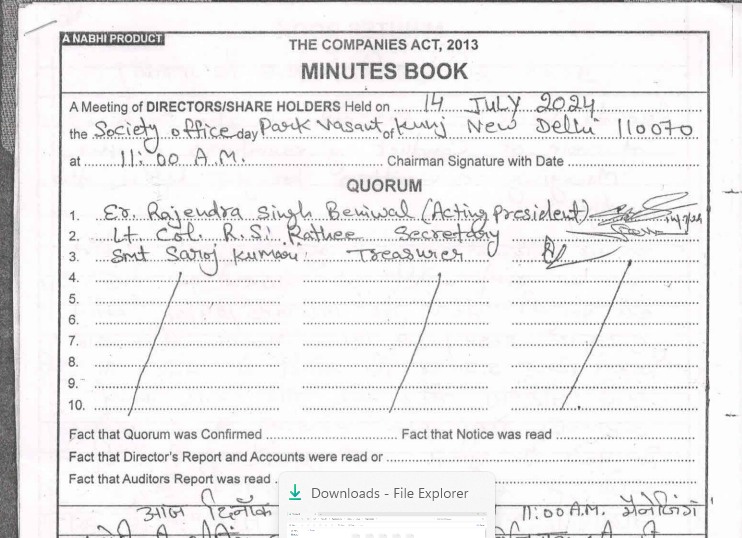 A NABHI PRODUCT
THE COMPANIES ACT, 2013
MINUTES BOOK
A Meeting of DIRECTORS/SHARE HOLDERS Held on 14 JULY 2024
the Society office day Park Vasant of Kunj New Delhi 110070
at 11:00 A.M. Chairman Signature with Date
QUORUM
1. Er. Rajendra Singh Beniwal (Acting President)
2. Lt Col. R.S. Rathee Secretary
3. Smt Saroj Kumari Treasurer
4.
5.
6.
7.
8.
9.
10.
Fact that Quorum was Confirmed Fact that Notice was read
Fact that Director's Report and Accounts were read or
Fact that Auditors Report was read
Downloads - File Explorer
आज दिनाँक 11:00 A.M.